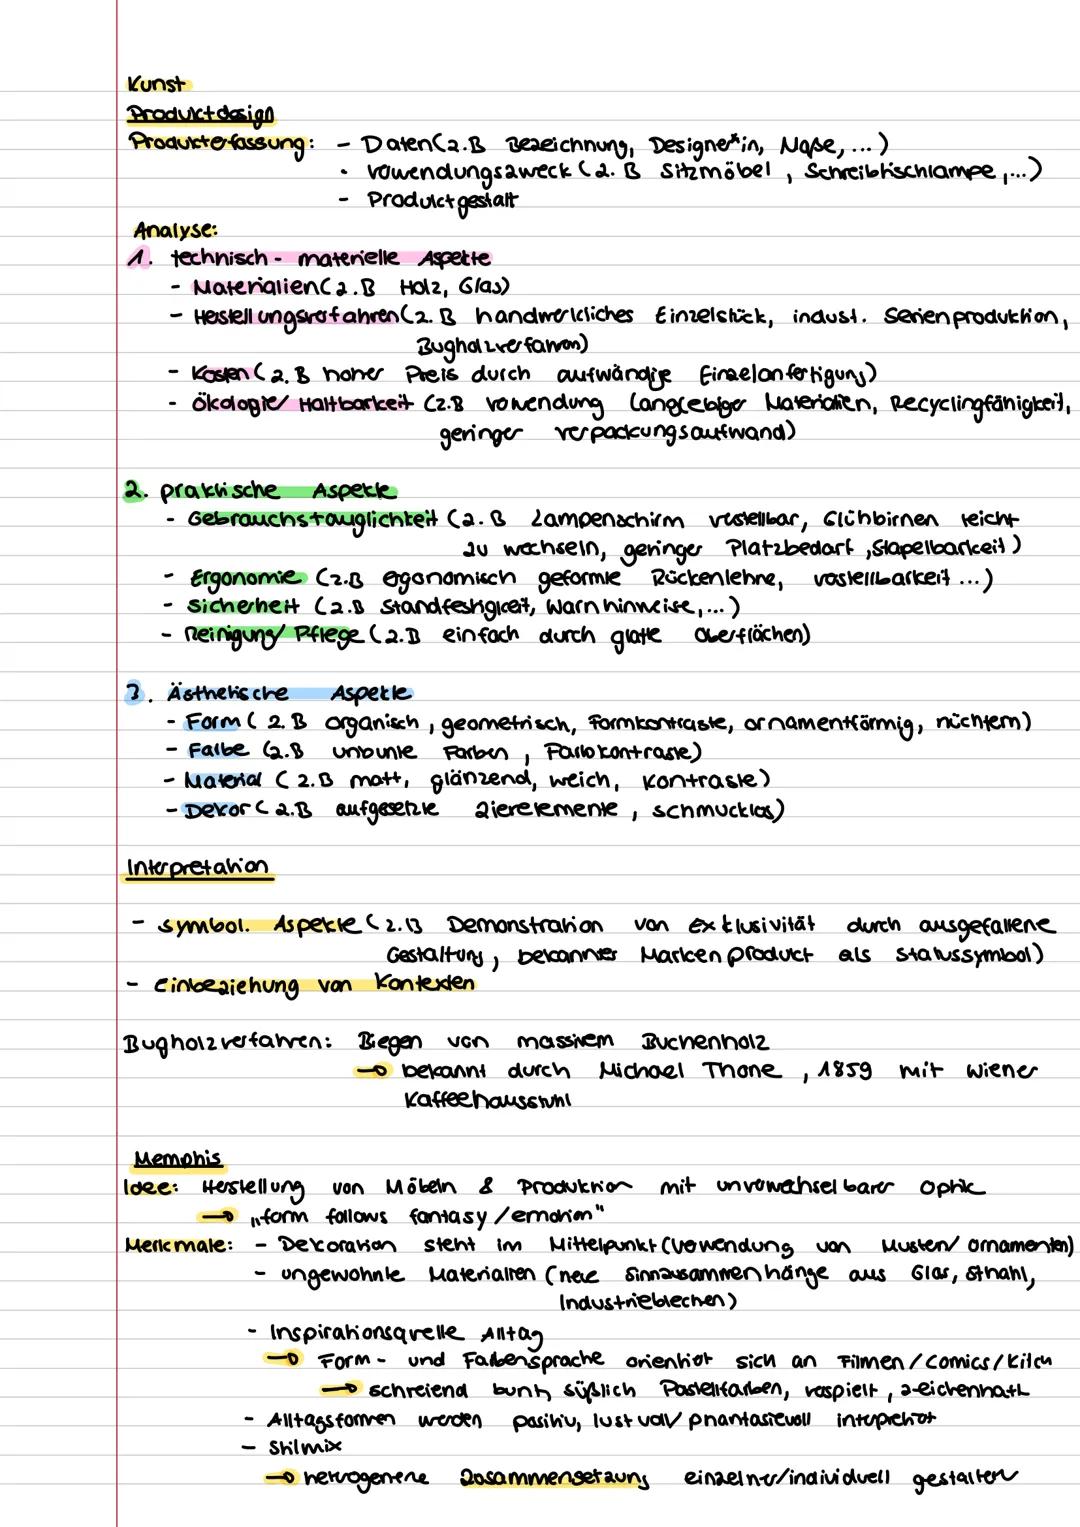 Kunst
Produktdesign
Produkterfassung: - Daten (z.B Bezeichnung, Designer*in, Maße, ...)
- Verwendungszweck (z.B Sitzmöbel, Schreibtischlampe, ...)
- Produktgestalt
Analyse:
1. technisch - materielle Aspekte
- Materialien (z.B Holz, Glas)
- Herstellungsverfahren (z.B handwerkliches Einzelstück, indust. Serienproduktion,
Bugholzverfahren)
- Kosten (z.B hoher Preis durch aufwändige Einzelanfertigung)
- Ökologie/ Haltbarkeit (z.B Verwendung langlebiger Materialien, Recyclingfähigkeit,
geringer Verpackungsaufwand)
2. praktische Aspekte
- Gebrauchstauglichkeit (z.B Lampenschirm verstellbar, Glühbirnen leicht
zu wechseln, geringer Platzbedarf, Stapelbarkeit)
- Ergonomie (z.B ergonomisch geformte Rückenlehne, Verstellbarkeit ...)
- Sicherheit (z.B Standfestigkeit, Warnhinweise, ...)
- Reinigung/ Pflege (z.B einfach durch glatte Oberflächen)
3. Ästhetische Aspekte
- Form (z.B organisch, geometrisch, Formkontraste, ornamentförmig, nüchtern)
- Farbe (z.B unbunte Farben, Farbkontraste)
- Material (z.B matt, glänzend, weich, Kontraste)
- Dekor (z.B aufgesetzte Zierelemente, schmucklos)
Interpretation
- symbol. Aspekte (z.B Demonstration von Exklusivität durch ausgefallene
Gestaltung, bekannter Markenproduct als Statussymbol)
- Einbeziehung von Kontexten
Bugholzverfahren: Biegen von massivem Buchenholz
→ bekannt durch Michael Thone, 1859 mit Wiener
Kaffeehausstuhl
Memphis
Idee: Herstellung von Möbeln & Produktion mit unverwechselbarer Optik
→ „form follows fantasy/emotion"
Merkmale: - Dekoration steht im Mittelpunkt (Verwendung von Mustern/ Ornamenten)
- ungewohnte Materialien (neue Sinnzusammenhänge aus Glas, Sthahl,
Industrieblechen)
- Inspirationsquelle Alltag
→ Form- und Farbensprache orientiert sich an Filmen/Comics/Kitch
→ schreiend bunt, süßlich Pastellfarben, verspielt, zeichenhaft
- Alltagsformen werden positiv, lustvoll/ phantasievoll interpretiert
- Stilmix
→ heterogene Zusammensetzung einzelner/individuell gestalter